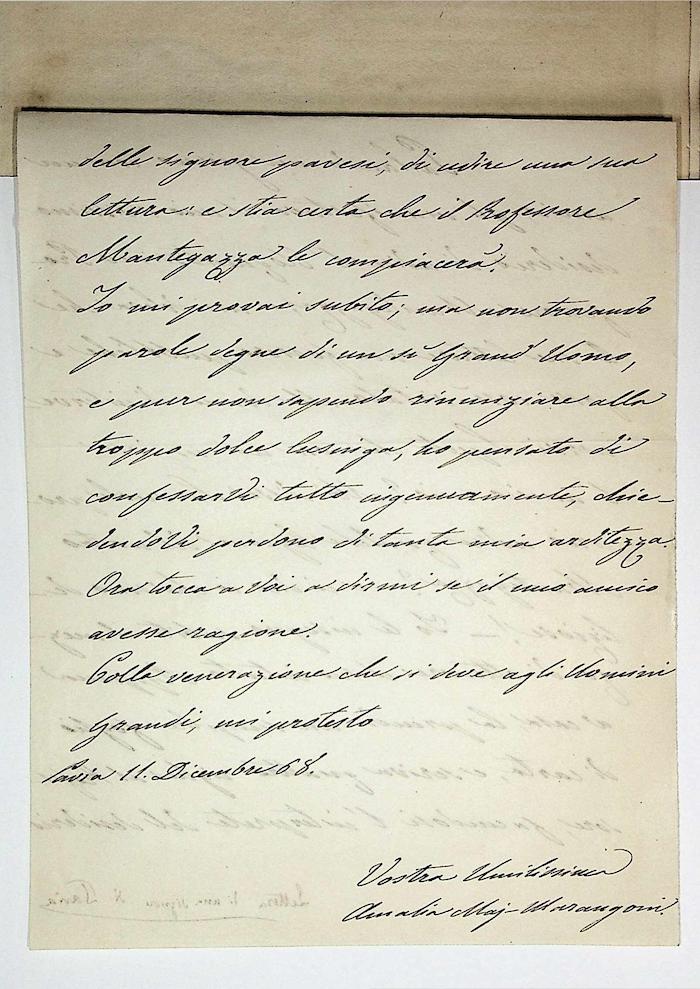 delle signore pavesi, di udire una sua
lettura: e stia certa che il Professore
Mantegazza le compiacerà.
Io mi provai subito; ma non trovando
parole degne di un sì Grand' Uomo,
e pur non sapendo rinunziare alla
troppo dolce lusinga, ho pensato di
confessarVi tutto ingenuamente, chie-
dendoVi perdono di tanta mia arditezza.
Ora tocca a Voi a dirmi se il mio amico
avesse ragione.
Colla venerazione che si deve agli Uomini
Grandi, mi protesto
Pavia 11. Dicembre 68.
Vostra Umilissima
Amalia Maj-Marangoni.